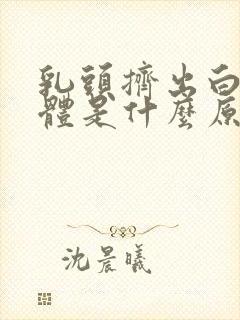 乳頭擠出白
體是什麼原
沈晨曦